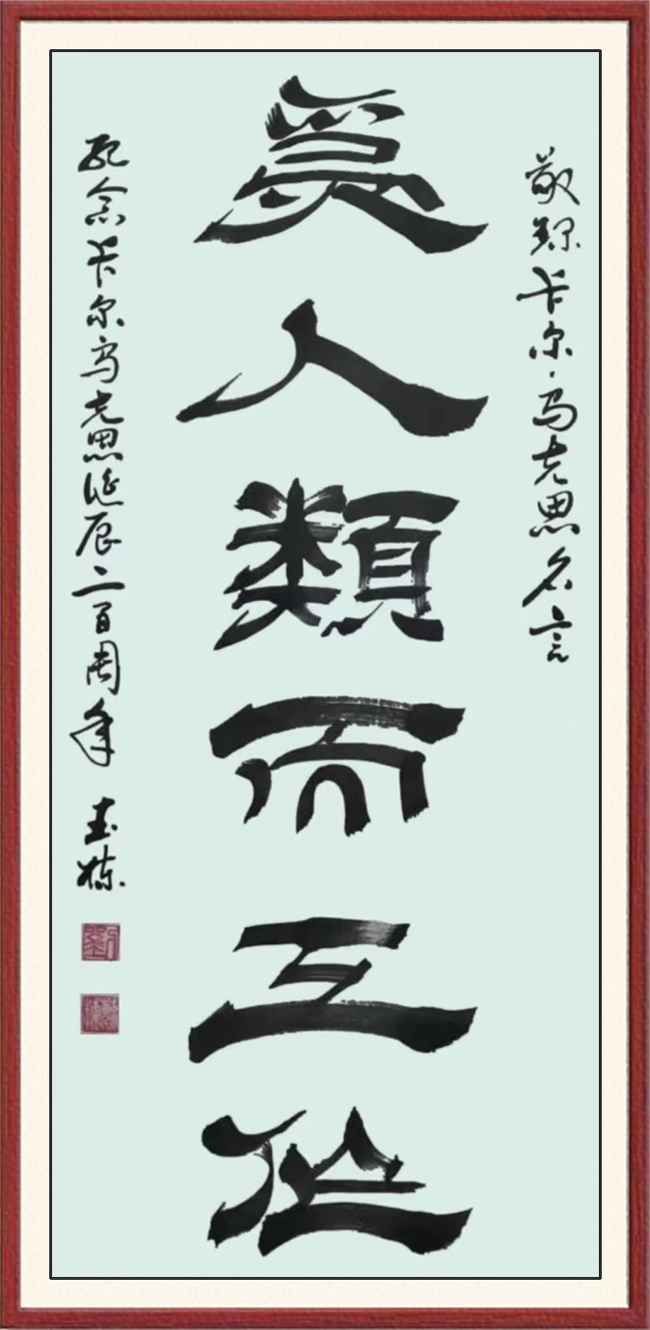 敬录卡尔·马克思名言
為人類而工作
纪念卡尔马克思诞辰二百周年
劉